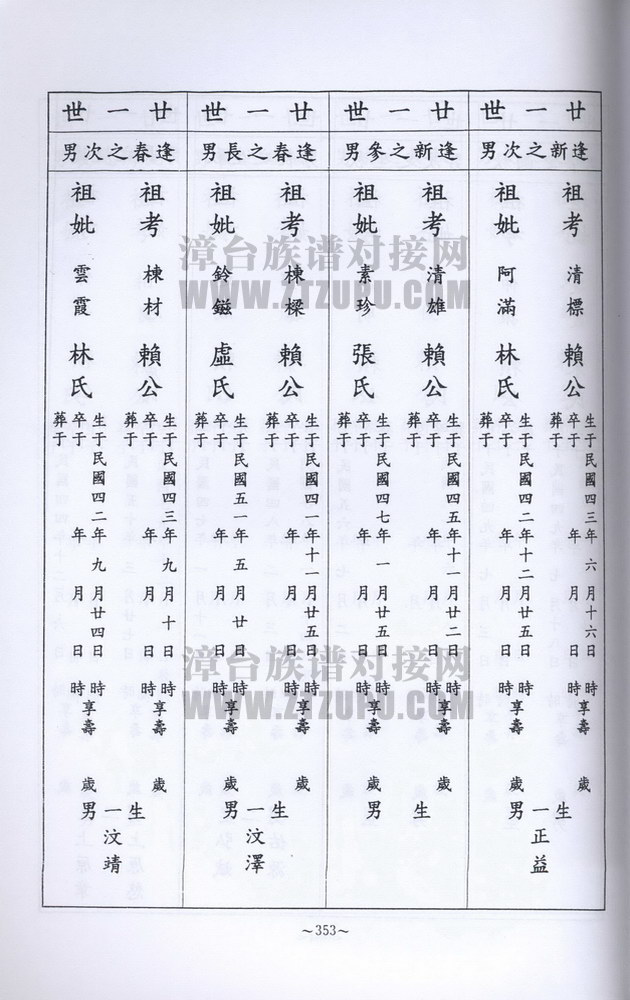 廿一世
逢新之次男
祖考 清標 賴公
生于民國四三年六月十六日 時
卒于 年 月 日 時享壽 歲
葬于
祖妣 阿滿 林氏
生于民國四二年十二月廿五日 時
卒于 年 月 日 時享壽 歲
葬于
生一男
正益
廿一世
逢新之參男
祖考 清雄 賴公
生于民國四五年十一月廿二日 時
卒于 年 月 日 時享壽 歲
葬于
祖妣 素珍 張氏
生于民國四七年一月廿五日 時
卒于 年 月 日 時享壽 歲
葬于
生 男
廿一世
逢春之長男
祖考 棟樑 賴公
生于民國四一年十一月廿五日 時
卒于 年 月 日 時享壽 歲
葬于
祖妣 鈴鎡 盧氏
生于民國五一年五月廿日 時
卒于 年 月 日 時享壽 歲
葬于
生一男
汶澤
廿一世
逢春之次男
祖考 棟材 賴公
生于民國四三年九月十日 時
卒于 年 月 日 時享壽 歲
葬于
祖妣 雲霞 林氏
生于民國四二年九月廿四日 時
卒于 年 月 日 時享壽 歲
葬于
生一男
汶靖
~353~
漳台族谱对接网
WWW.ZTZUPU.COM
漳台族谱对接网
WWW.ZTZUPU.COM